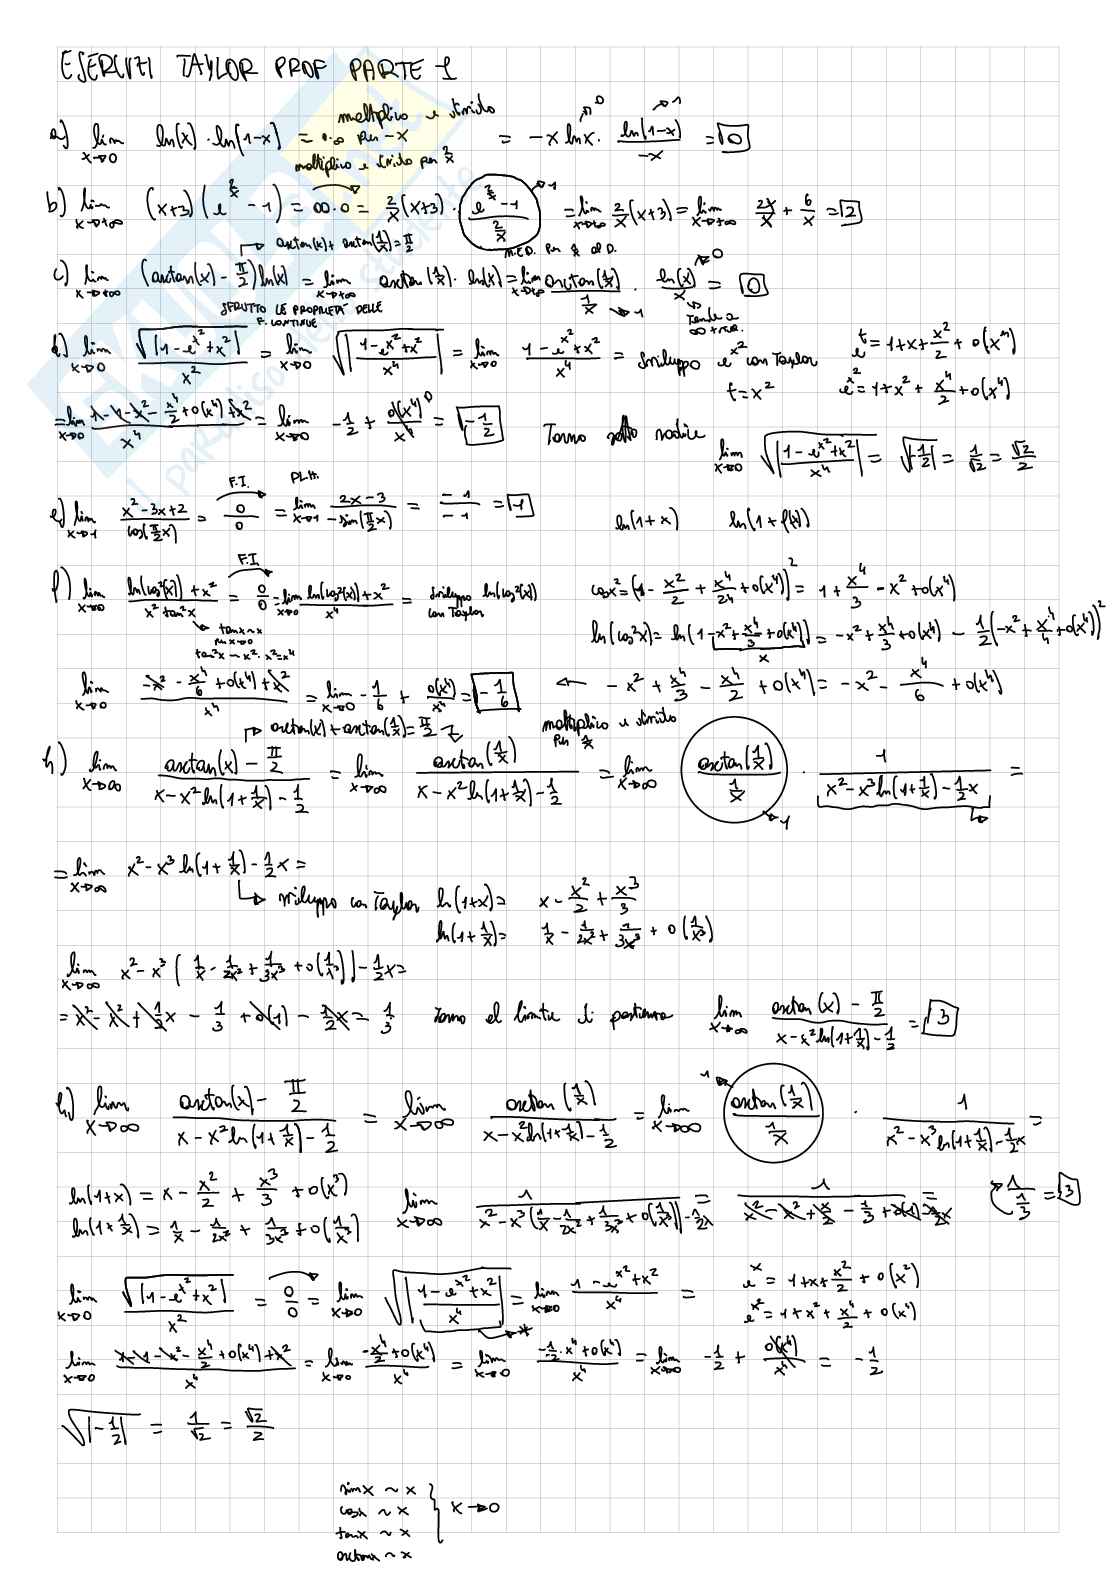 ESERCIZI TAYLOR PROF PARTE 1
moltiplico e divido
a) lim x→0 ln(x)·ln(1-x) = 0·∞ per -x = -x lnx · ln(1-x)/-x = 0
→0 →1
moltiplico e divido per 2/x
b) lim x→+∞ (x+3)(e^(2/x) - 1) = ∞·0 = 2/x (x+3) · (e^(2/x) - 1)/(2/x) →1 = lim x→+∞ 2/x (x+3) = lim x→+∞ 2x/x + 6/x = 2
→ arctan(x) + arctan(1/x) = π/2
M.E.D. per 1/x al D.
c) lim x→+∞ (arctan(x) - π/2) ln(x) = lim x→+∞ arctan(1/x) · ln(x) = lim x→+∞ arctan(1/x)/(1/x) →1 · ln(x)/x →0 = 0
SFRUTTO LE PROPRIETÀ DELLE
F. CONTINUE
tende a
d) lim x→0 √|1-e^(x²)+x²| / x² = lim x→0 √|(1-e^(x²)+x²)/x⁴| = lim x→0 (1-e^(x²)+x²)/x⁴ = sviluppo e^(x²) con Taylor
e^t = 1+x+x²/2 + o(x^n)
t = x²
e^(x²) = 1+x² + x⁴/2 + o(x⁴)
= lim x→0 (1-1-x²-x⁴/2+o(x⁴)+x²)/x⁴ = lim x→0 -1/2 + o(x⁴)/x⁴ →0 = -1/2
Torno sotto radice
lim x→0 √|(1-e^(x²)+x²)/x⁴| = √|-1/2| = 1/√2 = √2/2
F.I.
e) lim x→1 (x²-3x+2)/cos(π/2 x) = 0/0 = lim x→1 (2x-3)/(-sin(π/2 x)) = -1/-1 = 1
ln(1+x) ln(1+f(x))
F.I.
f) lim x→0 (ln(cos²(x))+x²)/(x² tan²x) = 0/0 = lim x→0 (ln(cos²(x))+x²)/x⁴ = sviluppo ln(cos²(x))
con Taylor
cosx² = (1 - x²/2 + x⁴/24 + o(x⁴))² = 1 + x⁴/3 - x² + o(x⁴)
tanx~x
per x→0
tan²x ~ x²·x²=x⁴
ln(cos²x) = ln(1-x²+x⁴/3+o(x⁴)) = -x²+x⁴/3+o(x⁴) - 1/2(-x²+x⁴/4+o(x⁴))²
x
lim x→0 (-x² - x⁴/6 + o(x⁴)+x²)/x⁴ = lim x→0 -1/6 + o(x⁴)/x⁴ = -1/6
← -x² + x⁴/3 - x⁴/2 + o(x⁴) = -x² - x⁴/6 + o(x⁴)
→ arctan(x)+arctan(1/x) = π/2
moltiplico e divido
per 1/x
h) lim x→∞ (arctan(x) - π/2)/(x-x²ln(1+1/x)-1/2) = lim x→∞ arctan(1/x)/(x-x²ln(1+1/x)-1/2) = lim x→∞ arctan(1/x)/(1/x) →1 · 1/(x²-x³ln(1+1/x)-1/2x) =
= lim x→∞ x²-x³ ln(1+1/x)-1/2x =
↳ sviluppo con Taylor ln(1+x) = x - x²/2 + x³/3
ln(1+1/x) = 1/x - 1/2x² + 1/3x³ + o(1/x³)
lim x→∞ x²-x³ [1/x - 1/2x² + 1/3x³ + o(1/x³)] - 1/2x =
= x²-x²+1/2x - 1/3 + o(1) - 1/2x = 1/3
torno al limite di partenza
lim x→∞ (arctan(x) - π/2)/(x-x²ln(1+1/x)-1/2) = 3
h) lim x→∞ (arctan(x) - π/2)/(x-x²ln(1+1/x)-1/2) = lim x→∞ arctan(1/x)/(x-x²ln(1+1/x)-1/2) = lim x→∞ arctan(1/x)/(1/x) →1 · 1/(x²-x³ln(1+1/x)-1/2x) =
ln(1+x) = x - x²/2 + x³/3 + o(x³)
ln(1+1/x) = 1/x - 1/2x² + 1/3x³ + o(1/x³)
lim x→∞ 1/(x²-x³(1/x-1/2x²+1/3x³+o(1/x³))-1/2x) = 1/(x²-x²+x/2-1/3+o(1)-1/2x) = 1/(1/3) = 3
lim x→0 √|1-e^(x²)+x²| / x² = 0/0 = lim x→0 √|(1-e^(x²)+x²)/x⁴| →* = lim x→0 (1-e^(x²)+x²)/x⁴ =
e^x = 1+x+x²/2 + o(x²)
e^(x²) = 1+x²+x⁴/2 + o(x⁴)
lim x→0 (1-1-x²-x⁴/2+o(x⁴)+x²)/x⁴ = lim x→0 (-x⁴/2+o(x⁴))/x⁴ = lim x→0 (-1/2·x⁴+o(x⁴))/x⁴ = lim x→0 -1/2 + o(x⁴)/x⁴ = -1/2
√|-1/2| = 1/√2 = √2/2
sinx ~ x
cosx ~ x
} x→0
tanx ~ x
arctanx ~ x